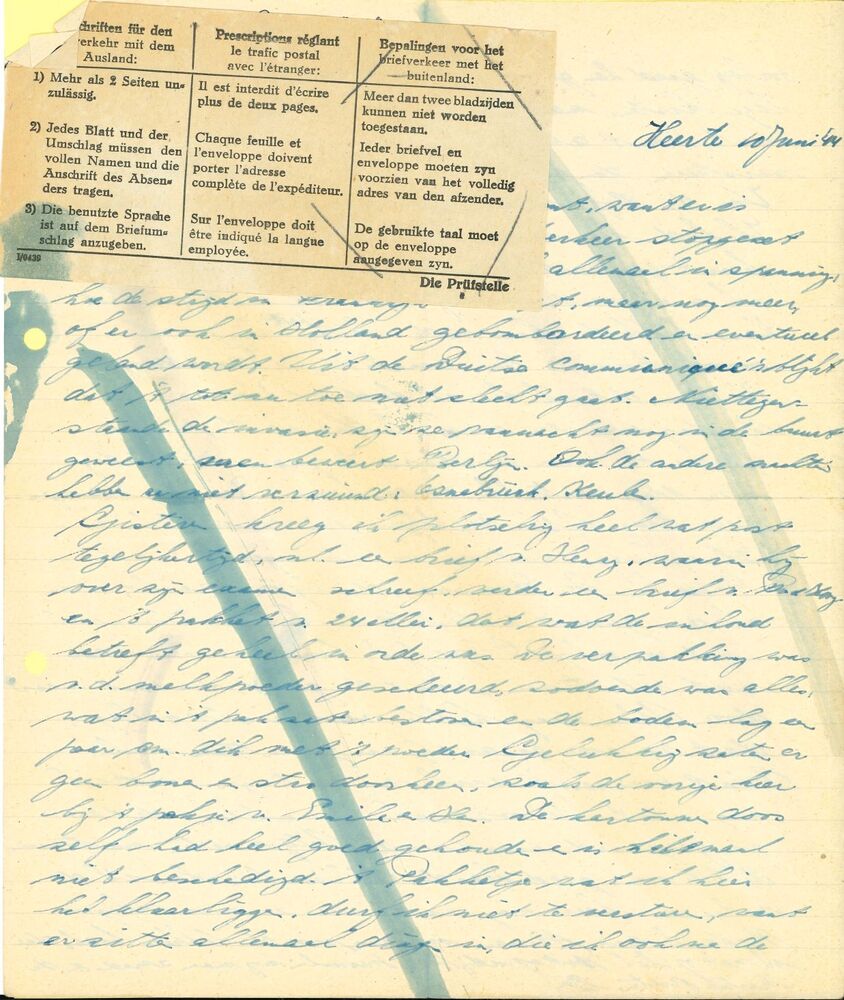 chriften für den
verkehr mit dem
Ausland:
1) Mehr als 2 Seiten un=
zulässig.
2) Jedes Blatt und der
Umschlag müssen den
vollen Namen und die
Anschrift des Absen=
ders tragen.
3) Die benutzte Sprache
ist auf dem Briefum=
schlag anzugeben.
I/0439
Prescriptions réglant
le trafic postal
avec l'étranger:
Il est interdit d'écrire
plus de deux pages.
Chaque feuille et
l'enveloppe doivent
porter l'adresse
complète de l'expéditeur.
Sur l'enveloppe doit
être indiqué la langue
employée.
Bepalingen voor het
briefverkeer met het
buitenland:
Meer dan twee bladzijden
kunnen niet worden
toegestaan.
Ieder briefvel en
enveloppe moeten zyn
voorzien van het volledig
adres van den afzender.
De gebruikte taal moet
op de enveloppe
aangegeven zyn.
Die Prüfstelle
Heerte 10 Juni '44
want er is
stopgezet
allemaal in spanning,
hoe de strijd in maar nog meer,
of er ook in Holland gebombardeerd en eventueel
geland wordt. Uit de Duitse communiqué's blijkt
dat 't tot nu toe niet slecht gaat. Niettegen-
staande de invasie, zijn ze vannacht nog in de buurt
geweest, men beweert Berlijn. Ook de andere nachten
hebben ze niet verzuimd: Osnabrück, Keulen.
Gisteren kreeg ik plotseling heel wat post
tegelijkertijd, nl. een brief v. Henny, waarin hij
over zijn examen schreef, verder een brief v.
en 't pakket v. 24 , dat wat de inhoud
betreft geheel in orde was. De verpakking was
v.d. melkpoeder gescheurd, zodoende was alles,
wat in 't pak zat bestoven en de bodem lag een
paar cm. dik met 't poeder. Gelukkig zaten er
geen bonen en stro doorheen, zoals de vorige keer
bij 't pakje v. Emile en . De kartonnen doos
zelf had heel goed gehouden en is helemaal
niet beschadigd. 't Pakketje wat ik hier
heb klaarliggen, durf ik niet te versturen, want
er zitten allemaal dingen in, die ik ook na de